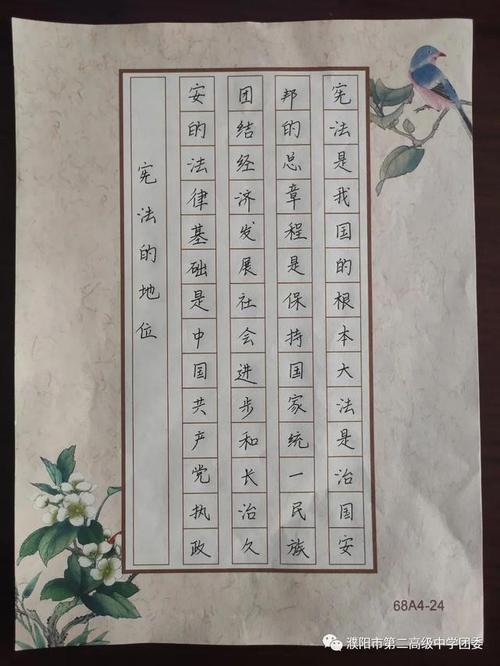 宪法是我国的根本大法是治国安
邦的总章程是保持国家统一民族
团结经济发展社会进步和长治久
安的法律基础是中国共产党执政
宪法的地位
68A4-24
濮阳市第二高级中学团委